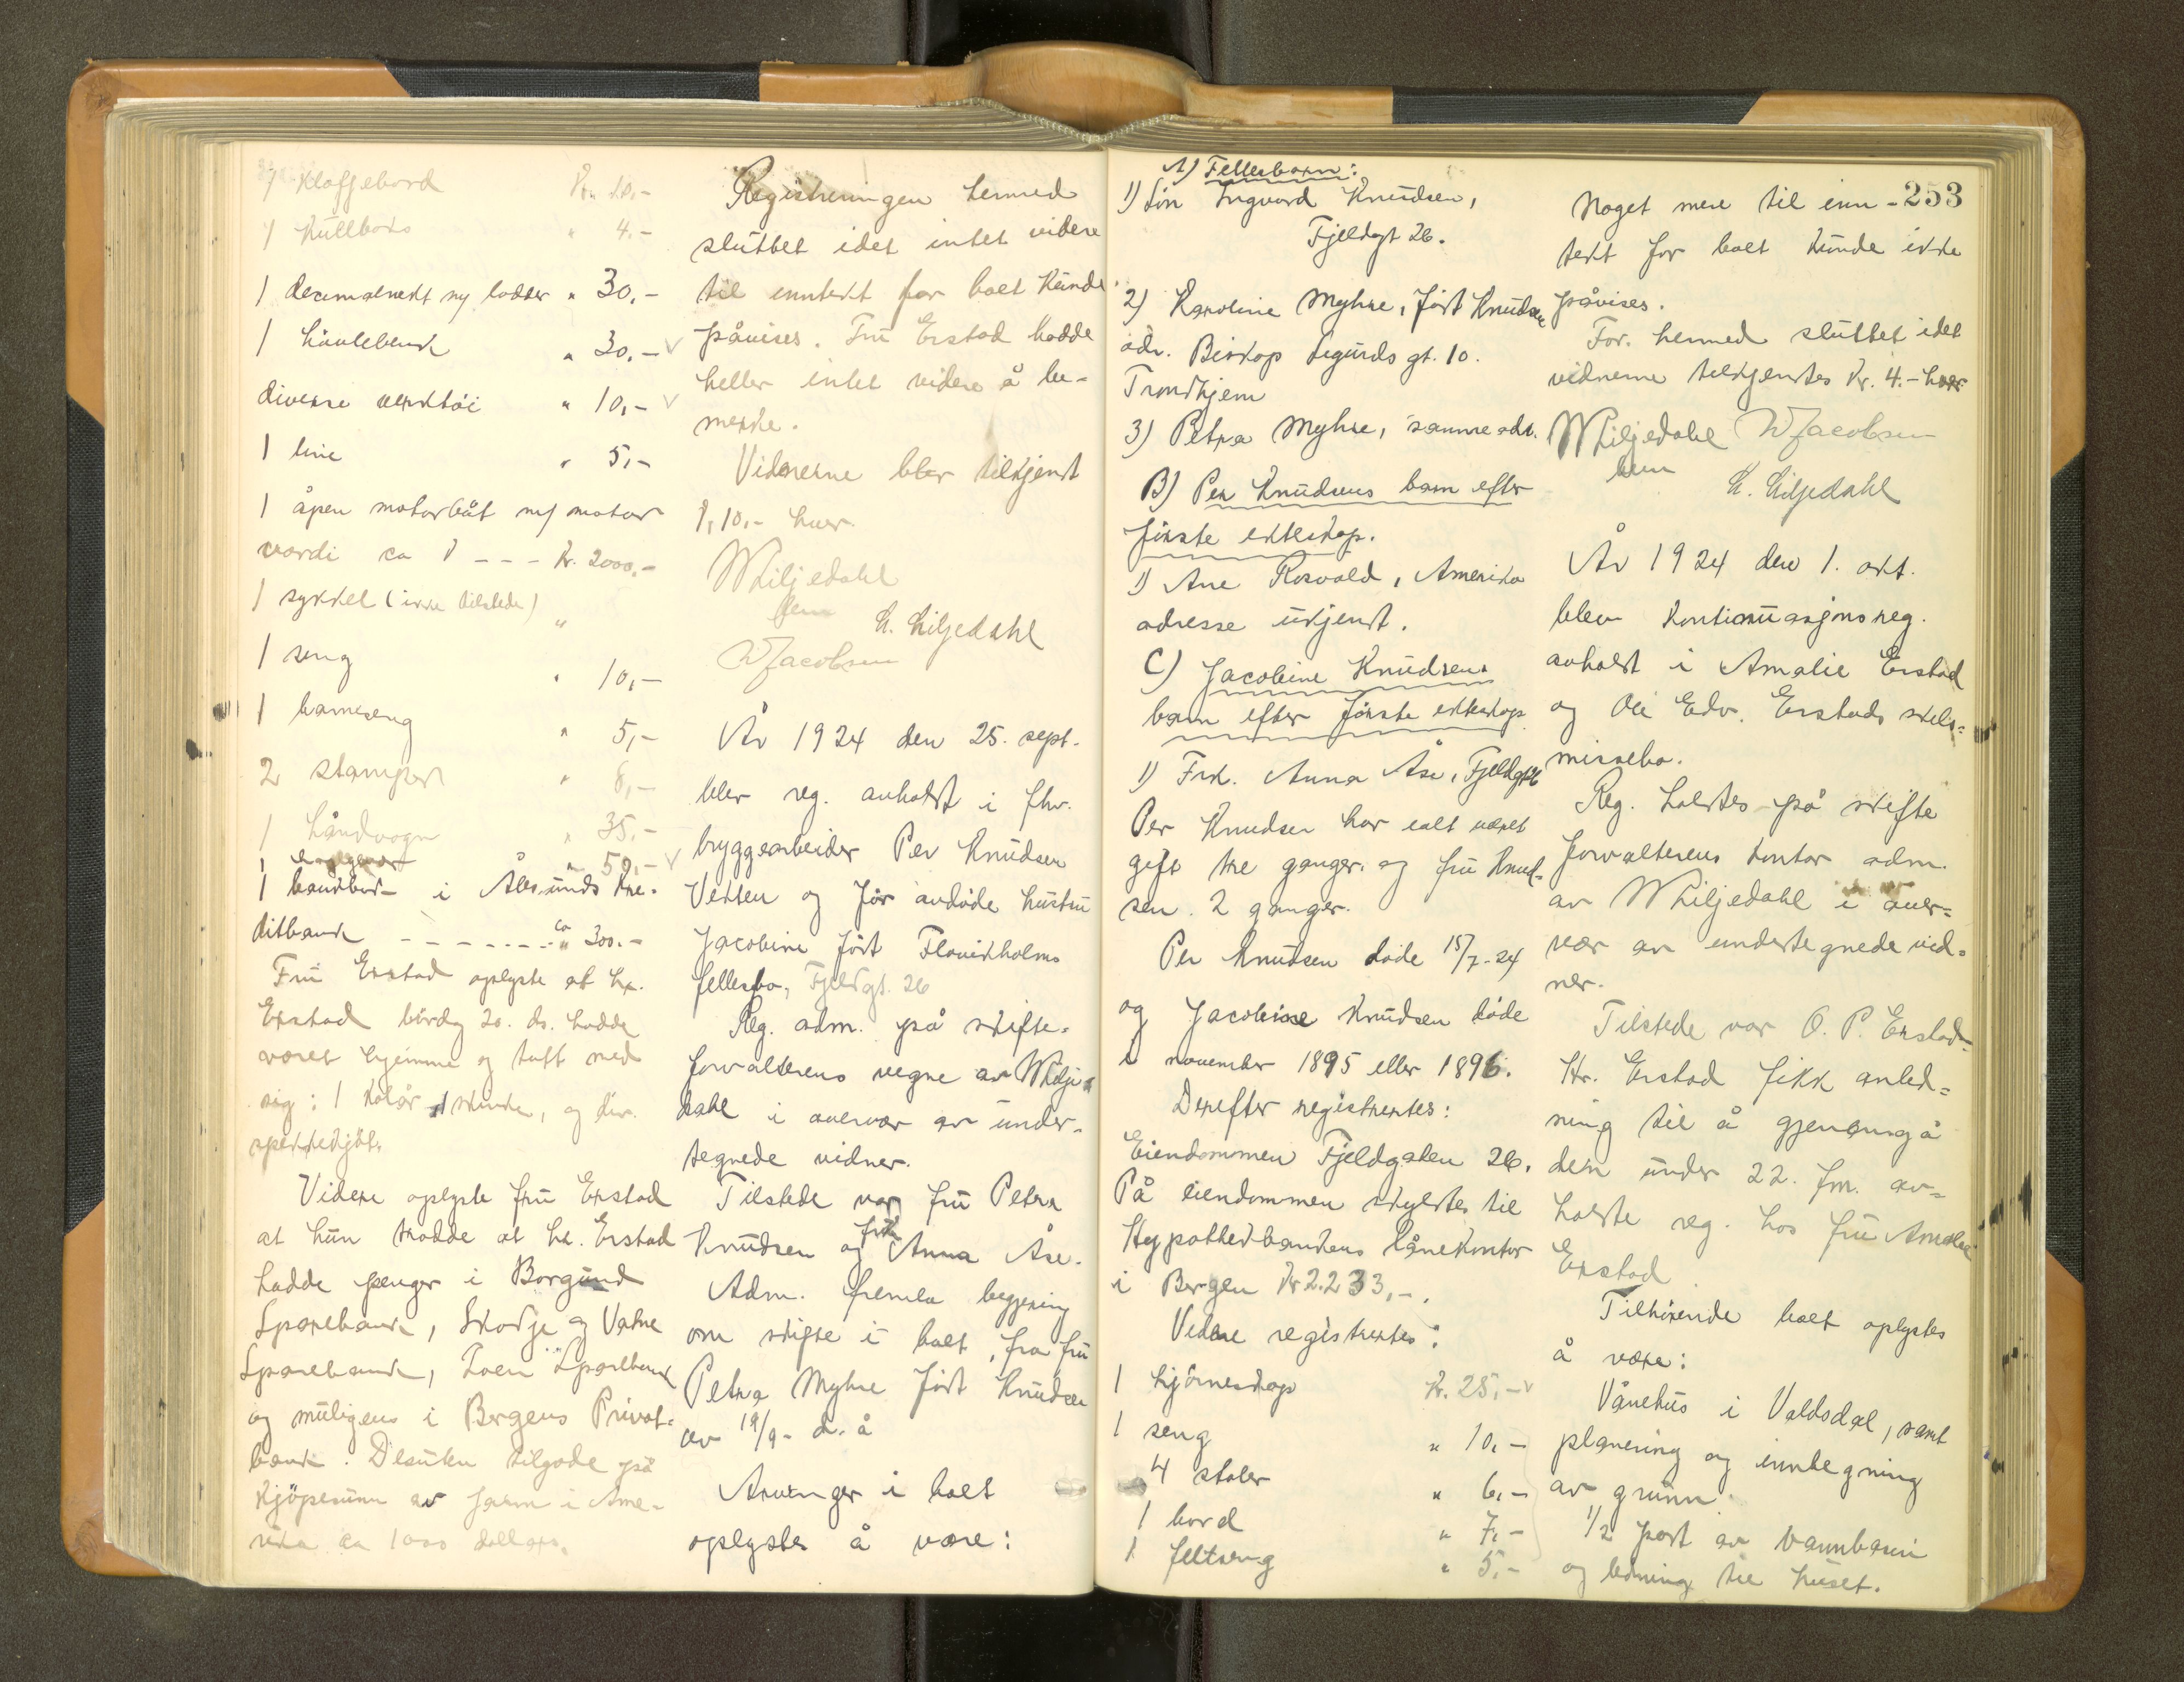 1 Klaffebord Kr. 10,-
1 Kullboks " 4.-
1 decimalvekt m/ lodder " 30,-
1 høvlebenk " 30,-
diverse verktøi " 10,-
1 line " 5,-
1 åpen motorbåt m/ motor
værdi ca - - - Kr. 2000,-
1 sykkel (ikke tilstede) "
1 seng " 10,-
1 barneseng " 5,-
2 stamper " 8,-
1 håndvogn " 35.-
1 " 50,-
1 bankbok i Ålesunds Kre-
ditbank - - - - - - - ca " 300.-
Fru Erstad oplyste at hr.
Erstad lørdag 20. ds. hadde
været hjemme og tatt med
sig: 1 kolår, 1 skinke, og div.
spekekjøt.
Videre oplyste fru Erstad
at hun trodde at hr. Erstad
hadde penger i Borgund
Sparebank, Skodje og Vatne
Sparebank, Loen Sparebank
og muligens i Bergens Privat-
bank. Desuten tilgode på
kjøpesum av farm i Ame-
rika ca 1000 dollars.
Registreringen hermed
sluttet idet intet videre
til inntekt for boet kunde
påvises. Fru Erstad hadde
heller intet videre å be-
merke.
Vidnerne blev tilkjent
Kr. 10.- hver.
WLiljedahl
L. Liljedahl
WJacobsen
År 1924 den 25. sept.
blev reg. avholdt i fhv.
bryggearbeider Per Knudsen
Vekten og før avdøde hustru
Jacobine født Flavikholms
fellesbo, Fjeldgt. 26
Reg. adm. på skifte-
forvalterens vegne av WLilje-
dahl i overvær av under-
tegnede vidner.
Tilstede var fru Petra
Knudsen og frk. Anna Åse.
Adm. fremla begjæring
om skifte i boet, fra fru
Petra Myhre født Knudsen
av 19/9- d. å
Arvinger i boet
oplystes å være:
253
A) Fellesbarn:
1) Søn Ingvard Knudsen,
Fjeldgt 26.
2) Karoline Myhre, født Knudsen
adr. Biskop Sigurds gt. 10.
Trondhjem
3) Petra Myhre, samme adr.
B) Per Knudsens barn efter
første ekteskap.
1) Ane Rosvold, Amerika
adresse ukjendt.
C) Jacobine Knudsens
barn efter første ekteskap
1) Frk. Anna Åse, Fjeldgt 26
Per Knudsen har ialt været
gift tre ganger og fru Knud-
sen 2 ganger.
Per Knudsen døde 15/7-24
og Jacobine Knudsen døde
i november 1895 eller 1896.
Derefter registrertes:
Eiendommen Fjeldgaten 26.
På eiendommen skyldtes til
Hypothekbankens lånekontor
i Bergen Kr 2.233,-.
Videre registrertes:
1 hjørneskap Kr. 25,-
1 seng " 10,-
4 stoler " 6,-
1 bord " 7,-
1 feltseng " 5,-
Noget mere til inn-
tekt for boet kunde ikke
påvises.
For. hermed sluttet idet
vidnerne tilkjentes Kr. 4.- hver
WLiljedahl WJacobsen
L. Liljedahl
År 1924 den 1. okt.
blev kontinuasjonsreg.
avholdt i Amalie Erstad
og Ole Edv. Erstads skils-
missebo.
Reg. holdtes på skifte
forvalterens kontor adm.
av WLiljedahl i over-
vær av undertegnede vid-
ner.
Tilstede var O. P. Erstad.
Hr. Erstad fikk anled-
ning til å gjennemgå
den under 22. fm. av-
holdte reg. hos fru Amalie
Erstad.
Tilhørende boet oplystes
å være:
Vånehus i Valdsdal, samt
planering og innhegning
av grunn.
1/2 part av vannbasin
og ledning til huset.